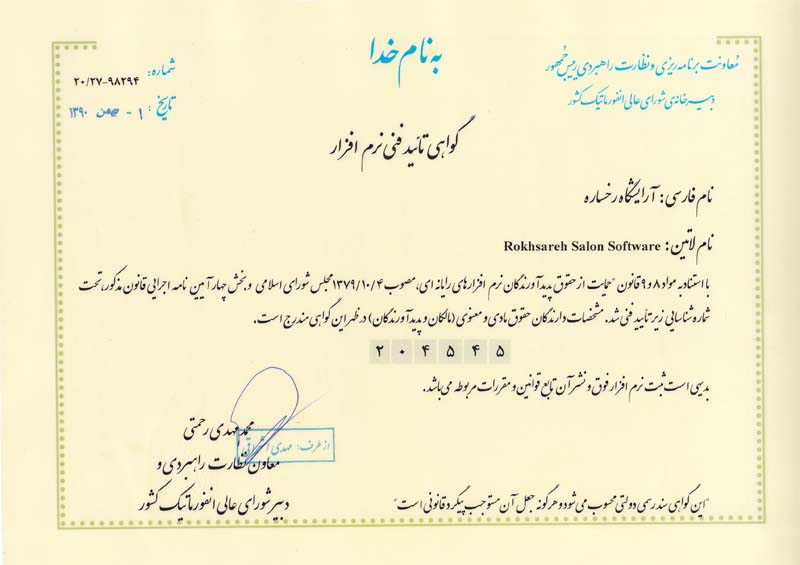 به نام خدا
معاونت برنامه ریزی و نظارت راهبردی رییس جمهور
دبیرخانه‌ی شورای عالی انفورماتیک کشور
شماره: ۲۰/۲۷-۹۸۲۹۴
تاریخ: ۱ - بهمن ۱۳۹۰
گواهی تائید فنی نرم افزار
نام فارسی: آرایشگاه رخساره
نام لاتین: Rokhsareh Salon Software
با استناد به مواد ۸ و ۹ قانون "حمایت از حقوق پدیدآورندگان نرم افزارهای رایانه ای، مصوب ۱۳۷۹/۱۰/۴ مجلس شورای اسلامی و بخش چهار آیین نامه اجرایی قانون مذکور، تحت
شماره شناسایی زیر تایید فنی شد. مشخصات دارندگان حقوق مادی و معنوی (مالکان و پدیدآورندگان) در ظهر این گواهی مندرج است.
۲۰۴۵۴۵
بدیهی است ثبت نرم افزار فوق و نشر آن تابع قوانین و مقررات مربوطه می باشد.
محمد مهدی رحمتی
از طرف: مهدی
معاون نظارت راهبردی و
دبیر شورای عالی انفورماتیک کشور
"این گواهی سند رسمی دولتی محسوب می شود و هرگونه جعل آن مستوجب پیگرد قانونی است"